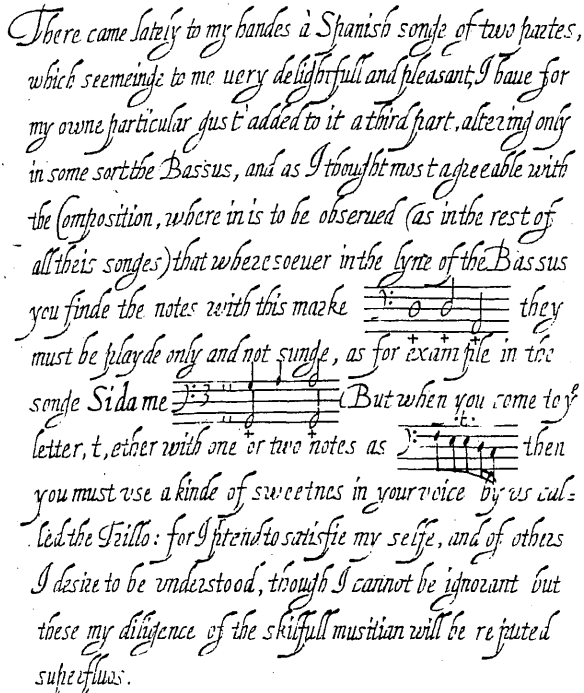 There came lately to my handes à Spanish songe of two partes,
which seemeinge to me uery delightfull and pleasant, I haue for
my owne particular gust added to it a third part, altering only
in some sort the Bassus, and as I thought most agreeable with
the Composition, where in is to be obserued (as in the rest of
all theis songes) that wheresoeuer in the lyne of the Bassus
you finde the notes with this marke they
must be playde only and not sunge, as for example in the
songe Sidame (But when you come to yᵉ
letter, t, ether with one or two notes as then
you must vse a kinde of sweetnes in your voice by us cal=
led the Trillo: for I ptend to satisfie my selfe, and of others
I desire to be vnderstood, though I cannot be ignorant but
these my diligence of the skilfull musitian will be reputed
superfluos.